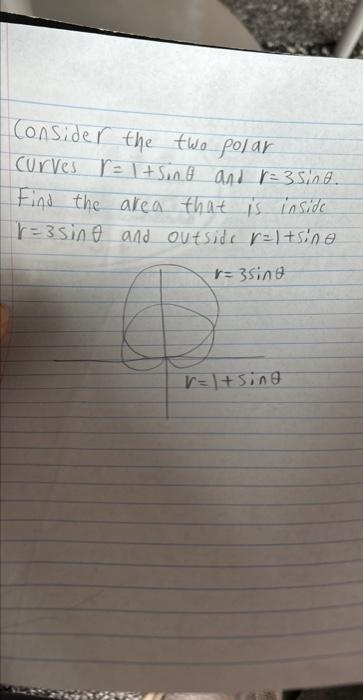 Consider the two polar
curves r=1+sinθ and r=3sinθ.
Find the area that is inside
r=3sinθ and outside r=1+sinθ
r=3sinθ
r=1+sinθ